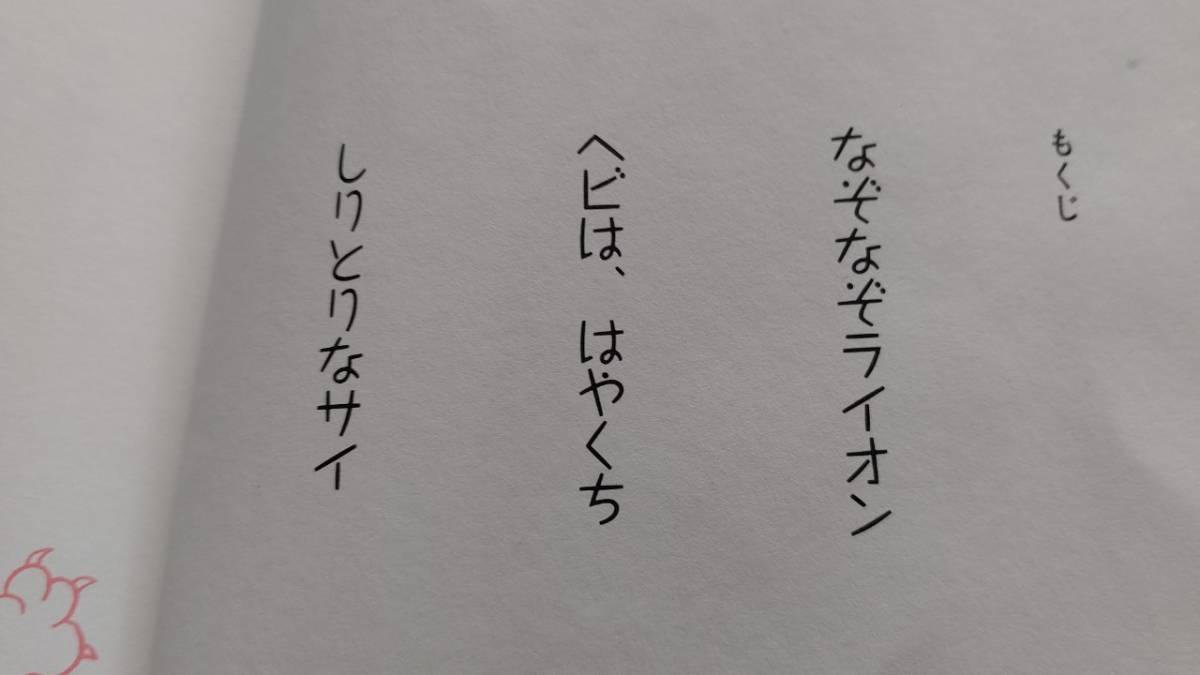 もくじ
なぞなぞライオン
ヘビは、 はやくち
しりとりなサイ